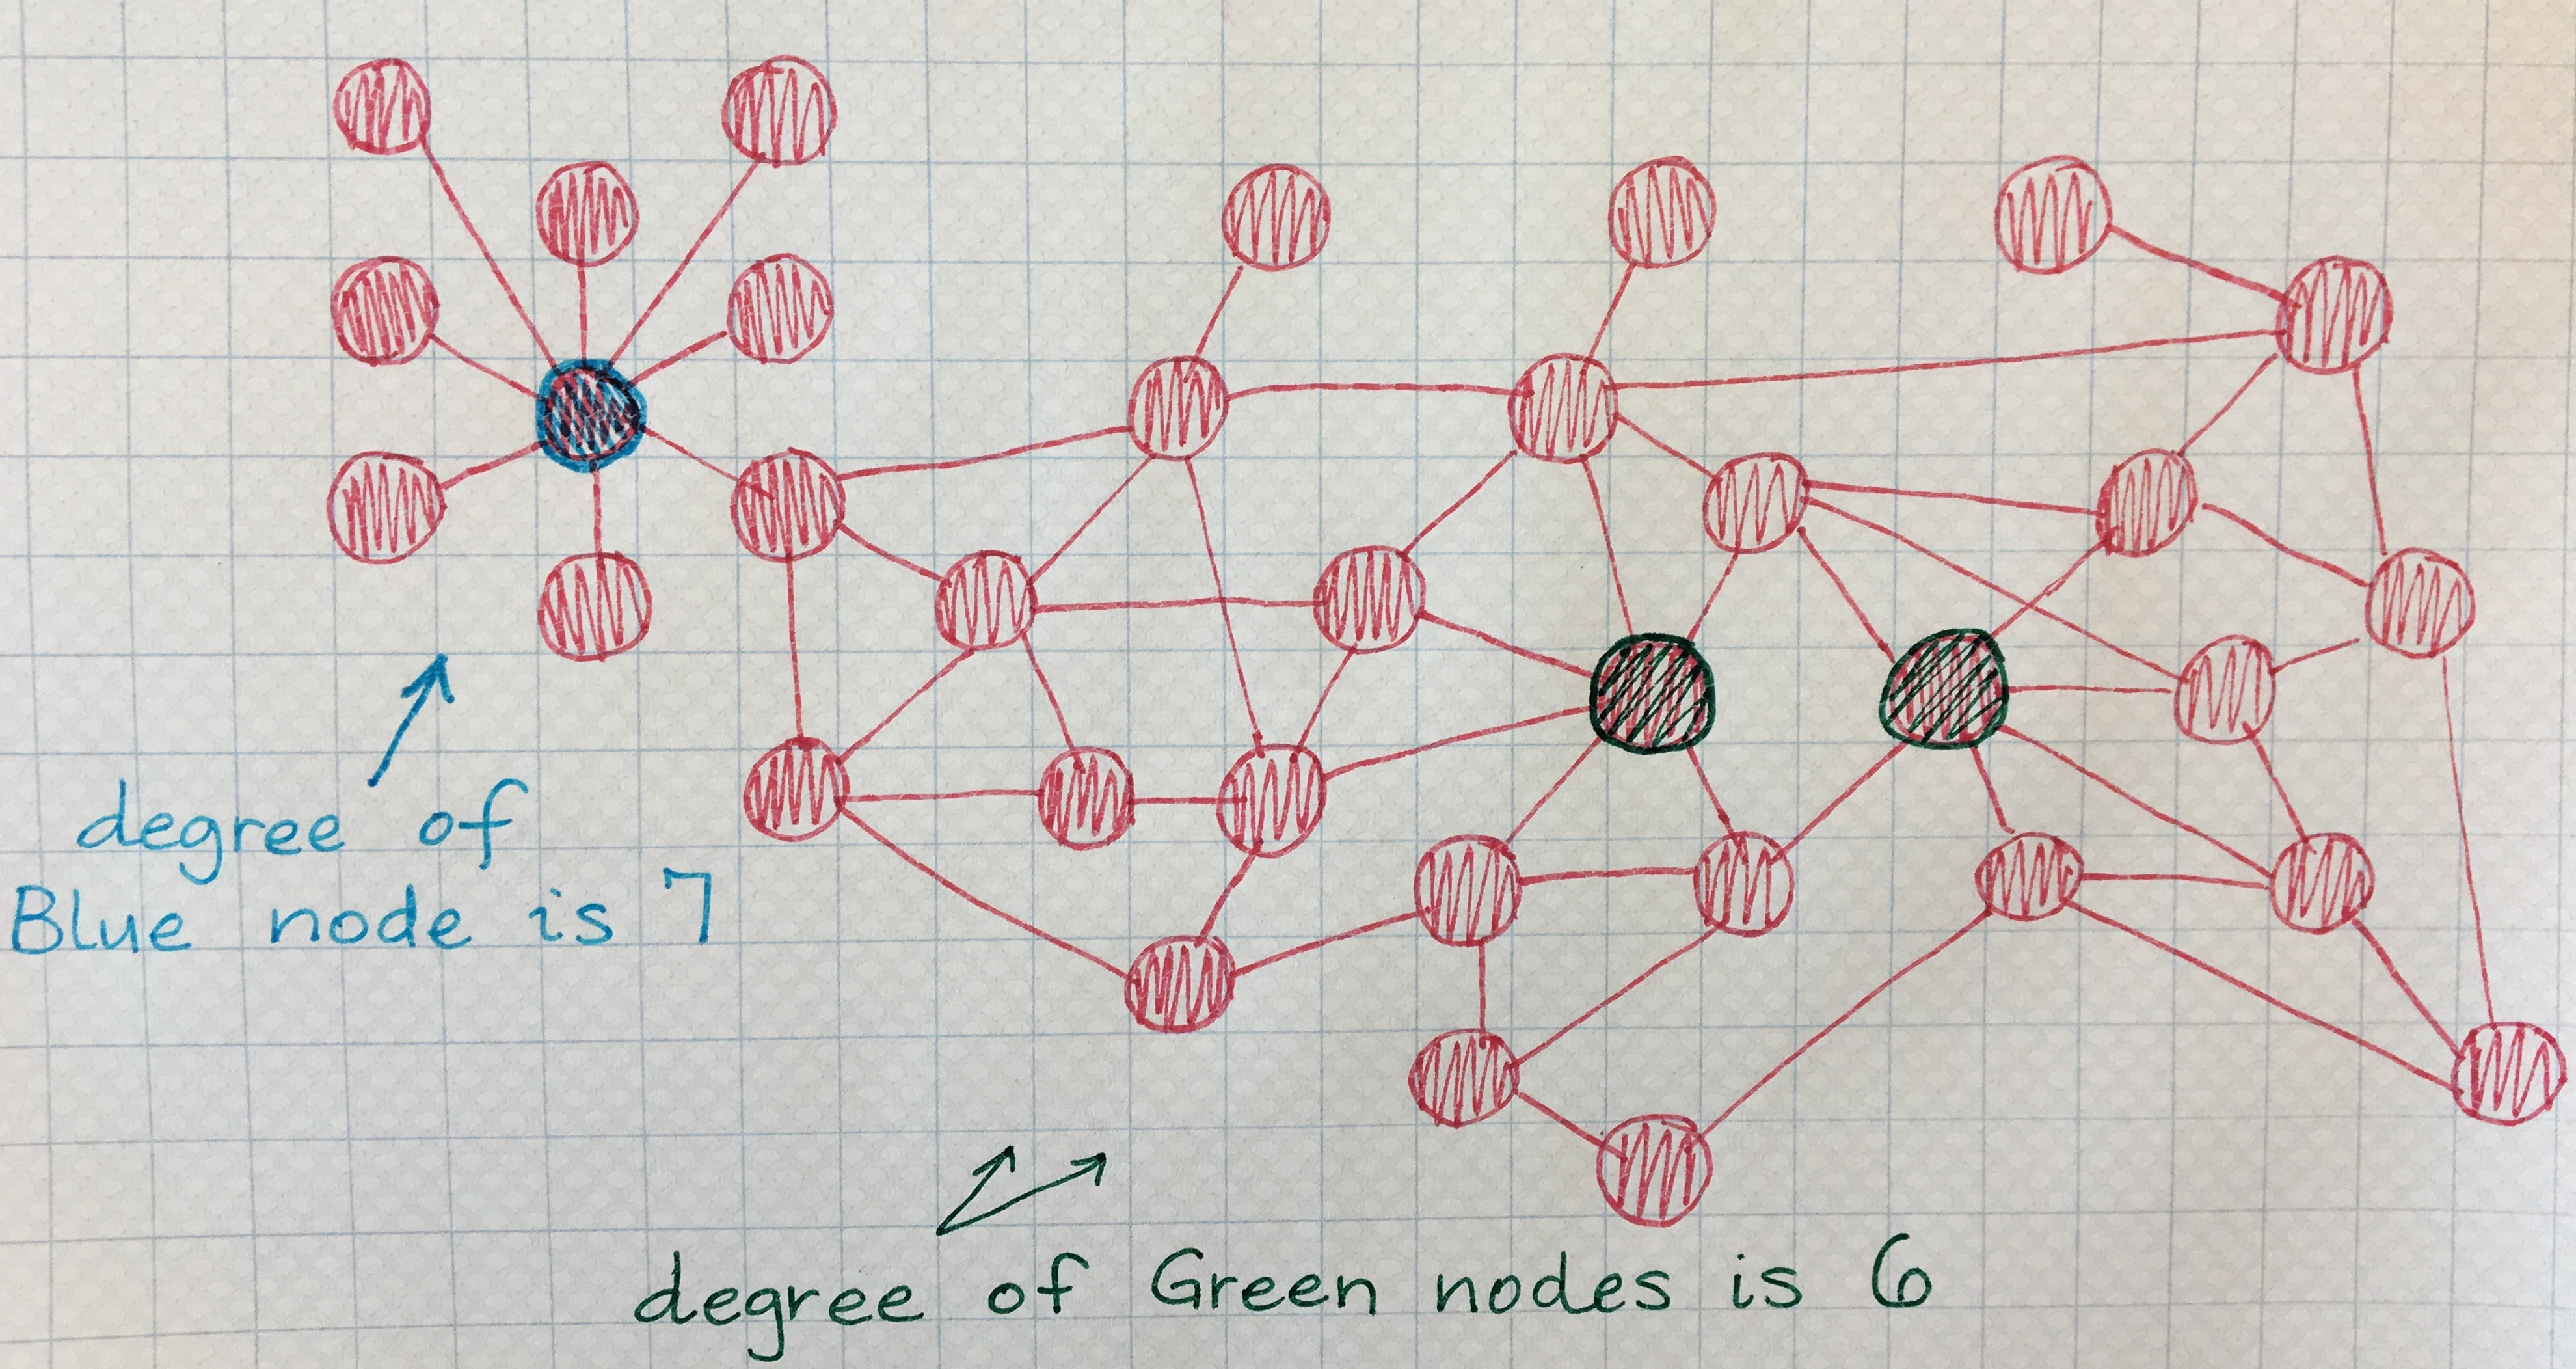 degree of
Blue node is 7
degree of Green nodes is 6